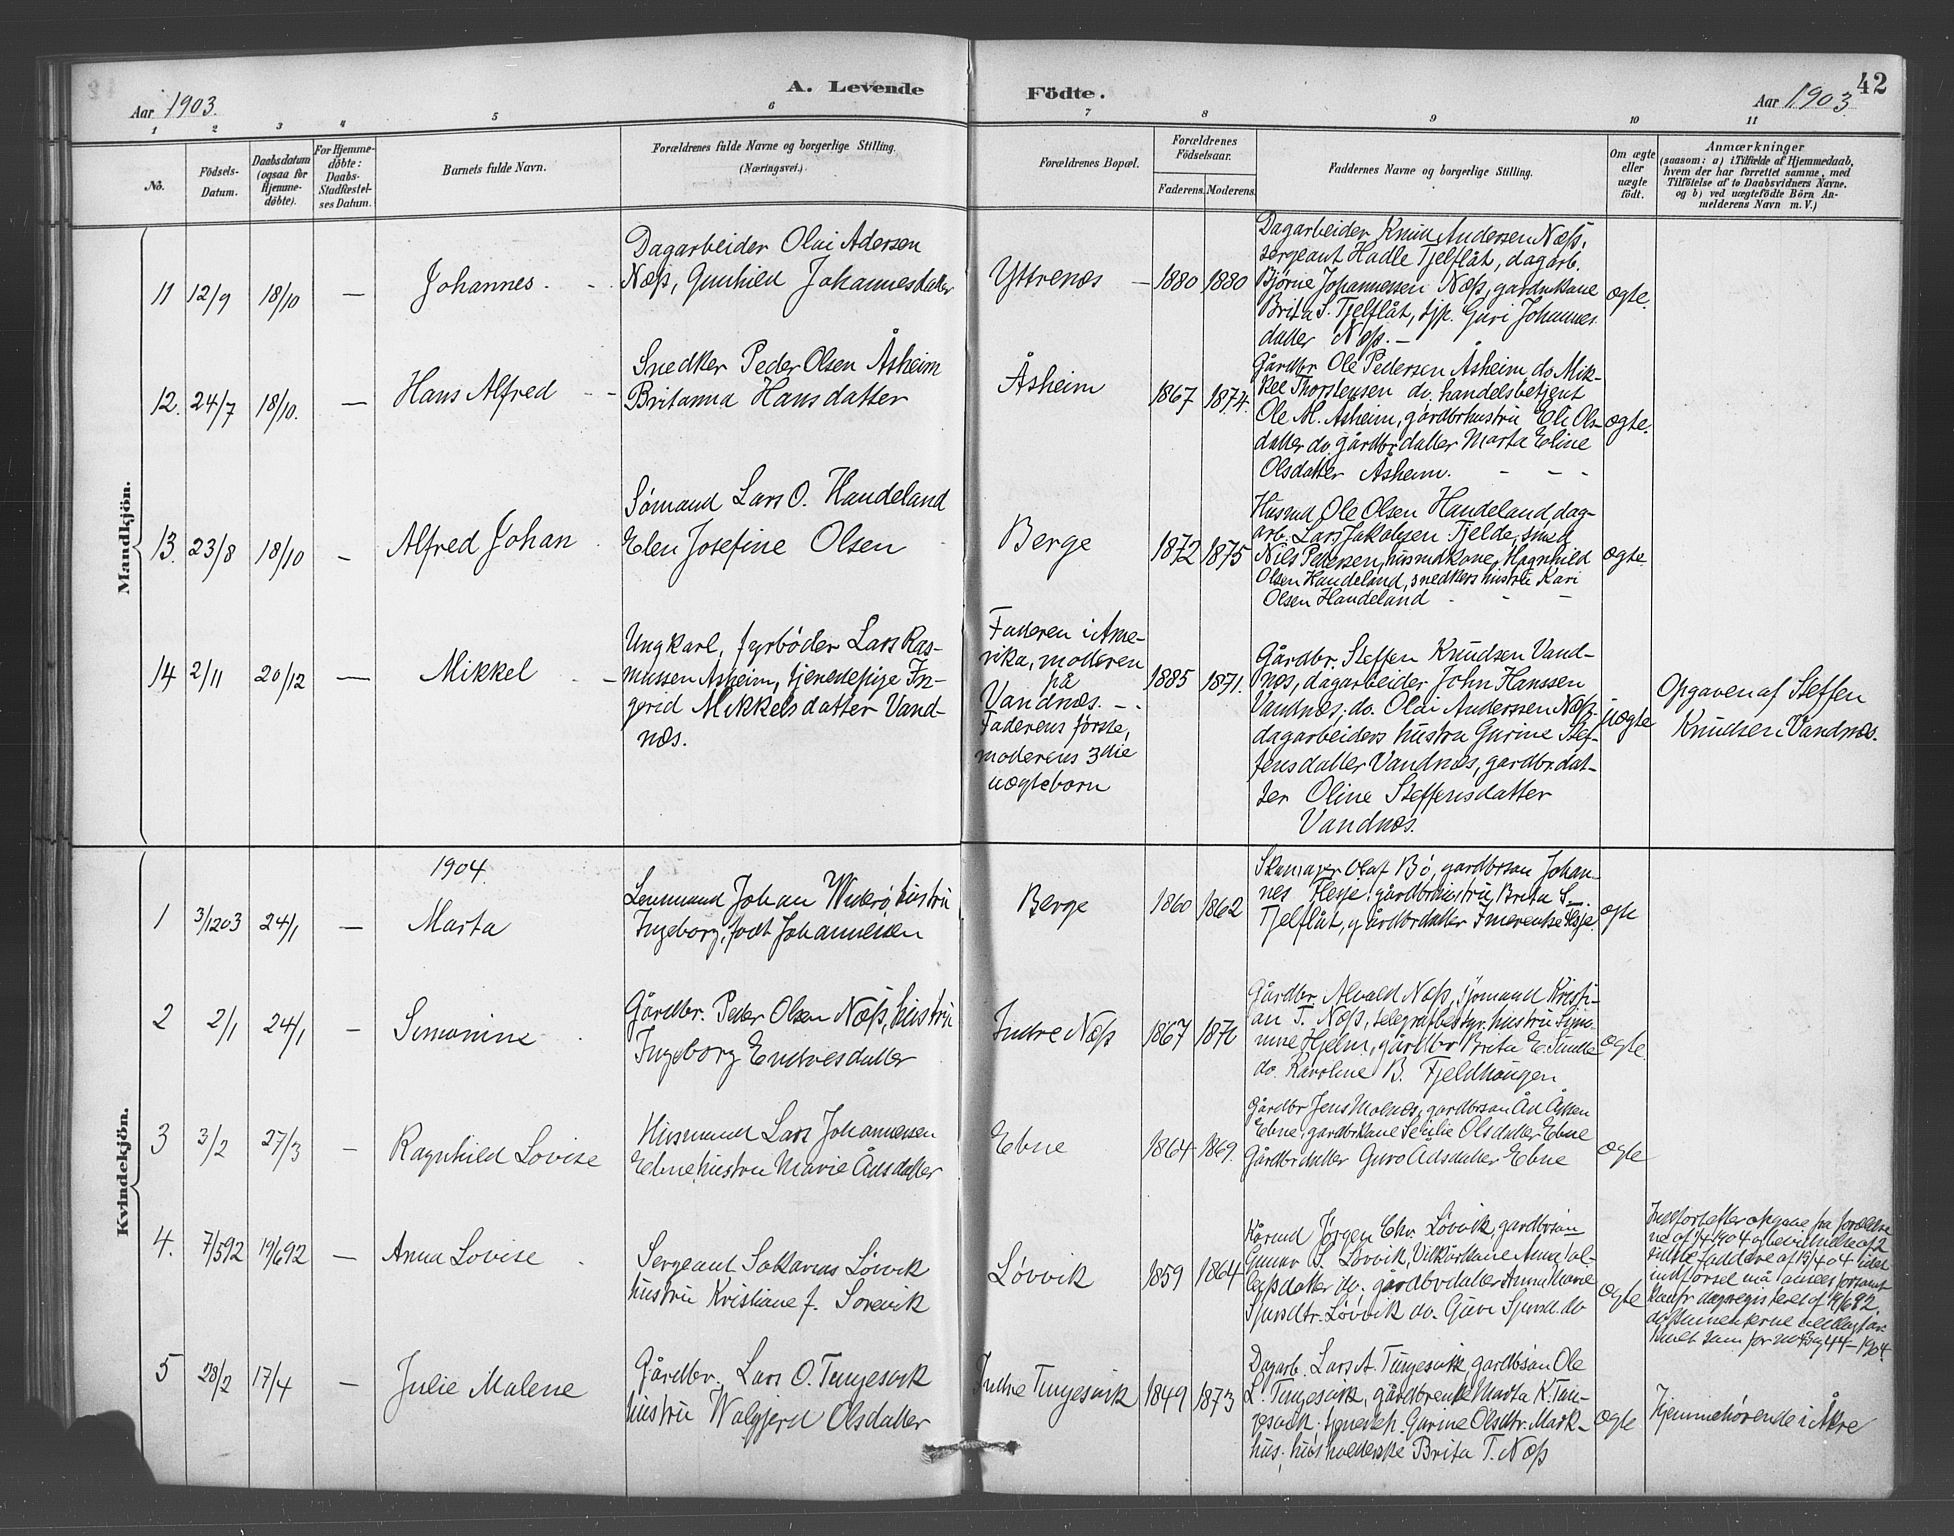 A. Levende Födte.
42
Aar 1903.
Aar 1903.
1 2 3 4 5 6 7 8 9 10 11
No.
Födsels-Datum.
Daabsdatum (ogsaa for Hjemme-döbte).
For Hjemme-döbte: Daabs-Stadfæstel-ses Datum.
Barnets fulde Navn.
Forældrenes fulde Navne og borgerlige Stilling. (Næringsvei.)
Forældrenes Bopæl.
Forældrenes Födselsaar.
Faderens. Moderens.
Faddernes Navne og borgerlige Stilling.
Om ægte eller uægte födt.
Anmærkninger
(saasom: a) i Tilfælde af Hjemmedaab,
hvem der har forrettet samme, med
Tilföielse af to Daabsvidners Navne,
og b) ved uægtefödte Börn An-
melderens Navn m. V.)
Mandkjön.
11 12/9 18/10 — Johannes.
Dagarbeider Olai Adersen
Næss, Gunhild Johannesdatter
Yttrenæs — 1880 1880
Dagarbeider Knut Andersen Næss,
sergeant Hadle Tjelflåt, dagarb.
Bjørne Johannessen Næss, gardbrkone
Brita S. Tjelflåt, tjp. Guri Johannes
datter Næss. —
ægte.
12. 24/7 18/10. — Hans Alfred
Snedker Peder Olsen Åsheim
Britanna Hansdatter
Åsheim 1867 1874.
Gårdbr. Ole Pedersen Åsheim do Mik-
kel Thorstensen do. handelsbetjent
Ole M. Åsheim, gårdbrhustru Eli Ols-
datter do. gårdbrdatter Marta Eline
Olsdatter Åsheim.
ægte.
13. 23/8 18/10 — Alfred Johan
Sømand Lars O. Handeland
Elen Josefine Olsen
Berge 1872 1875
Husmd Ole Olsen Handeland, dag-
arb. Lars Jakobsen Tjelde, smed
Nils Pedersen, husmdkone Ragnhild
Olsen Handeland, snedkers hustru Kari
Olsen Handeland
ægte
14 2/11 20/12 — Mikkel
Ungkarl, fyrbøder Lars Ras-
mussen Åsheim, tjenestepige In-
gerid Mikkelsdatter Vand-
næs.
Faderen i Ame-
rika, moderen
på
Vandnæs. —
Faderens første,
moderens 3die
uægtebarn
1885 1871.
Gårdbr. Steffen Knudsen Vand-
næs, dagarbeider John Hanssen
Vandnæs, do. Olai Anderssen Næss
dagarbeiders hustru Gurine Stef-
fensdatter Vandnæs, gardbrdat-
ter Oline Steffensdatter
Vandnæs.
uægte
Opgaven af Steffen
Knudsen Vandnæs.
Kvindekjön.
1904.
1 3/1203 24/1 — Marta
Lensmand Johan Widerø, hustru
Ingeborg, født Johannesen
Berge 1860 1862
Skomager Olaf Bø, gardbrsøn Johan-
nes Flesje, gårdbrhustru Brita S.
Tjelflåt, gårdbrdatter
egte
2 2/1 24/1 — Simonine
Gårdbr. Peder Olsen Næss, hustru
Ingeborg Endresdatter
Indre Næss 1867
Gårdbr. Alvald Næss, sjømand Kristi-
an T. Næss, telegrafbestyr. hustru Simo-
nine Hjelm, gårdbr Brita E.
do. Karoline B. Fjeldhaugen
ægte
3 3/2 27/3 — Ragnhild Lovise
Husmand Lars Johannessen
Ebne, hustru Marie Ådsdatter
Ebne 1864 1869.
Gårdbr Jens Molnæs, gardbrsøn Åd
Ebne, gardbrkone Secilie Olsdatter Ebne
Gårdbrdatter Guro Adsdatter Ebne
ægte
4. 7/592 19/692 — Anna Lovise
Sergeant Sakarias Løvvik
hustru Kristiane f. Sørevik
Løvvik 1859 1864
Kårmd Jørgen Chr. Løvvik, gardbrsøn
Gunar S. Løvvik, Vilkårskone Anna
datter do. gardbrdatter Anna Marie
Sjurdtr. Løvvik do. Guri Sjursd. do
ægte
Indført efter opgave fra foreldre
ne af
5 28/2 17/4 — Julie Malene
Gårdbr. Lars O. Tungesvik
hustru Walgjerd Olsdatter
Indre Tungesvik 1849 1873
Dagarb. Lars A. Tungesvik, gardbrsøn Ole
L. Tungesvik, gårdbrenke Marta K. Tun-
gesvik, tjenestep. Gurine Olsdtr. Mark-
hus, husholderske Brita T. Næss
ægte
Hjemmehørende i Åkre